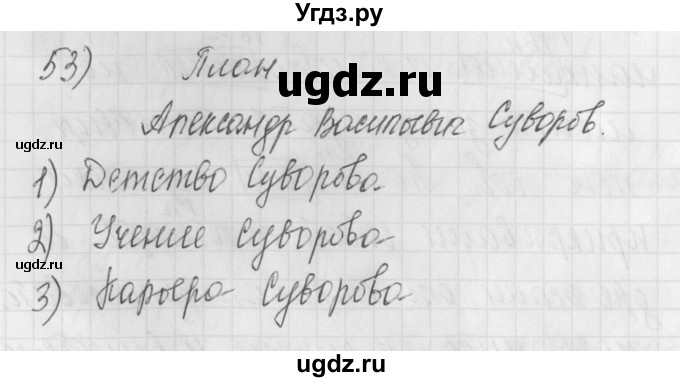 Угдз.ру
53) План
ugdz.ru
Александр Васильевич Суворов.
ugdz.ru
1) Детство Суворова
2) Учение Суворова
ugdz.ru
3) Карьера Суворова
ugdz.ru